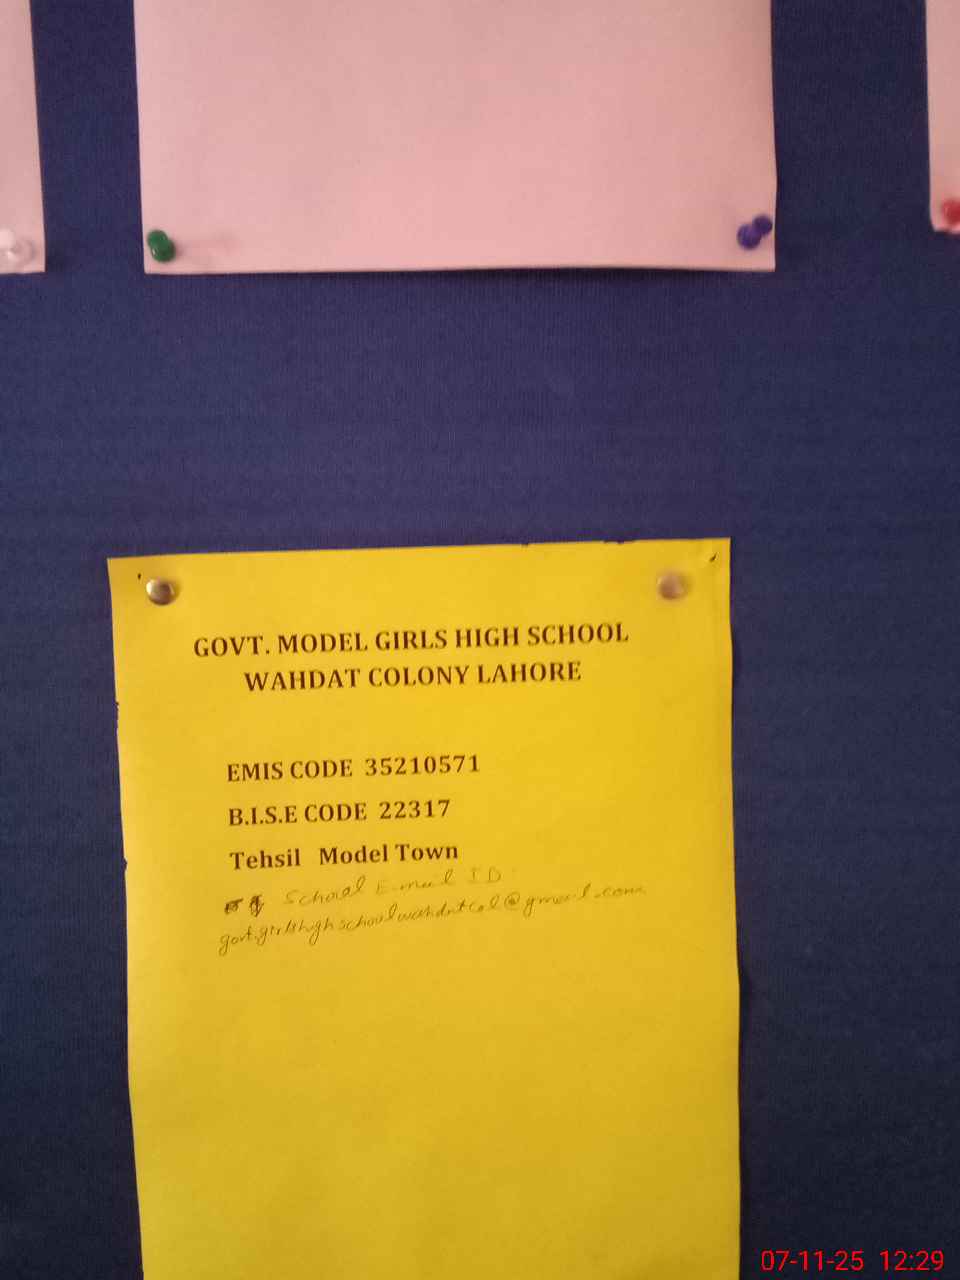 GOVT. MODEL GIRLS HIGH SCHOOL
WAHDAT COLONY LAHORE
EMIS CODE 35210571
B.I.S.E CODE 22317
Tehsil Model Town
School E-mail ID
govt.girlshighschoolwahdatcol@gmail.com
07-11-25 12:29